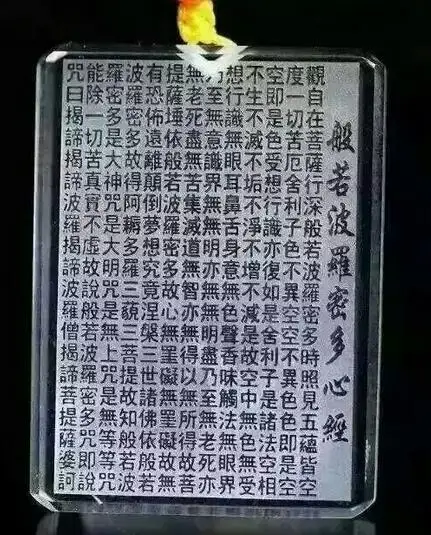 般若波羅密多心經
觀自在菩薩行深般若波羅密多時照見五蘊皆空
度一切苦厄舍利子色不異空空不異色色即是空
空即是色受想行識亦復如是舍利子是諸法空相
不生不滅不垢不淨不增不減是故空中無色無受
想行識無眼耳鼻舌身意無色聲香味觸法無眼界
乃至無意識界無無明亦無無明盡乃至無老死亦
無老死盡無苦集滅道無智亦無得以無所得故菩
提薩埵依般若波羅密多故心無罣礙無罣礙故無
有恐佈遠離顛倒夢想究竟涅槃三世諸佛依般若
波羅密多故得阿耨多羅三藐三菩提故知般若波
羅密多是大神咒是大明咒是無上咒是無等等咒
能除一切苦真實不虛故說般若波羅密多咒即說
咒曰揭諦揭諦波羅揭諦波羅僧揭諦菩提薩婆訶